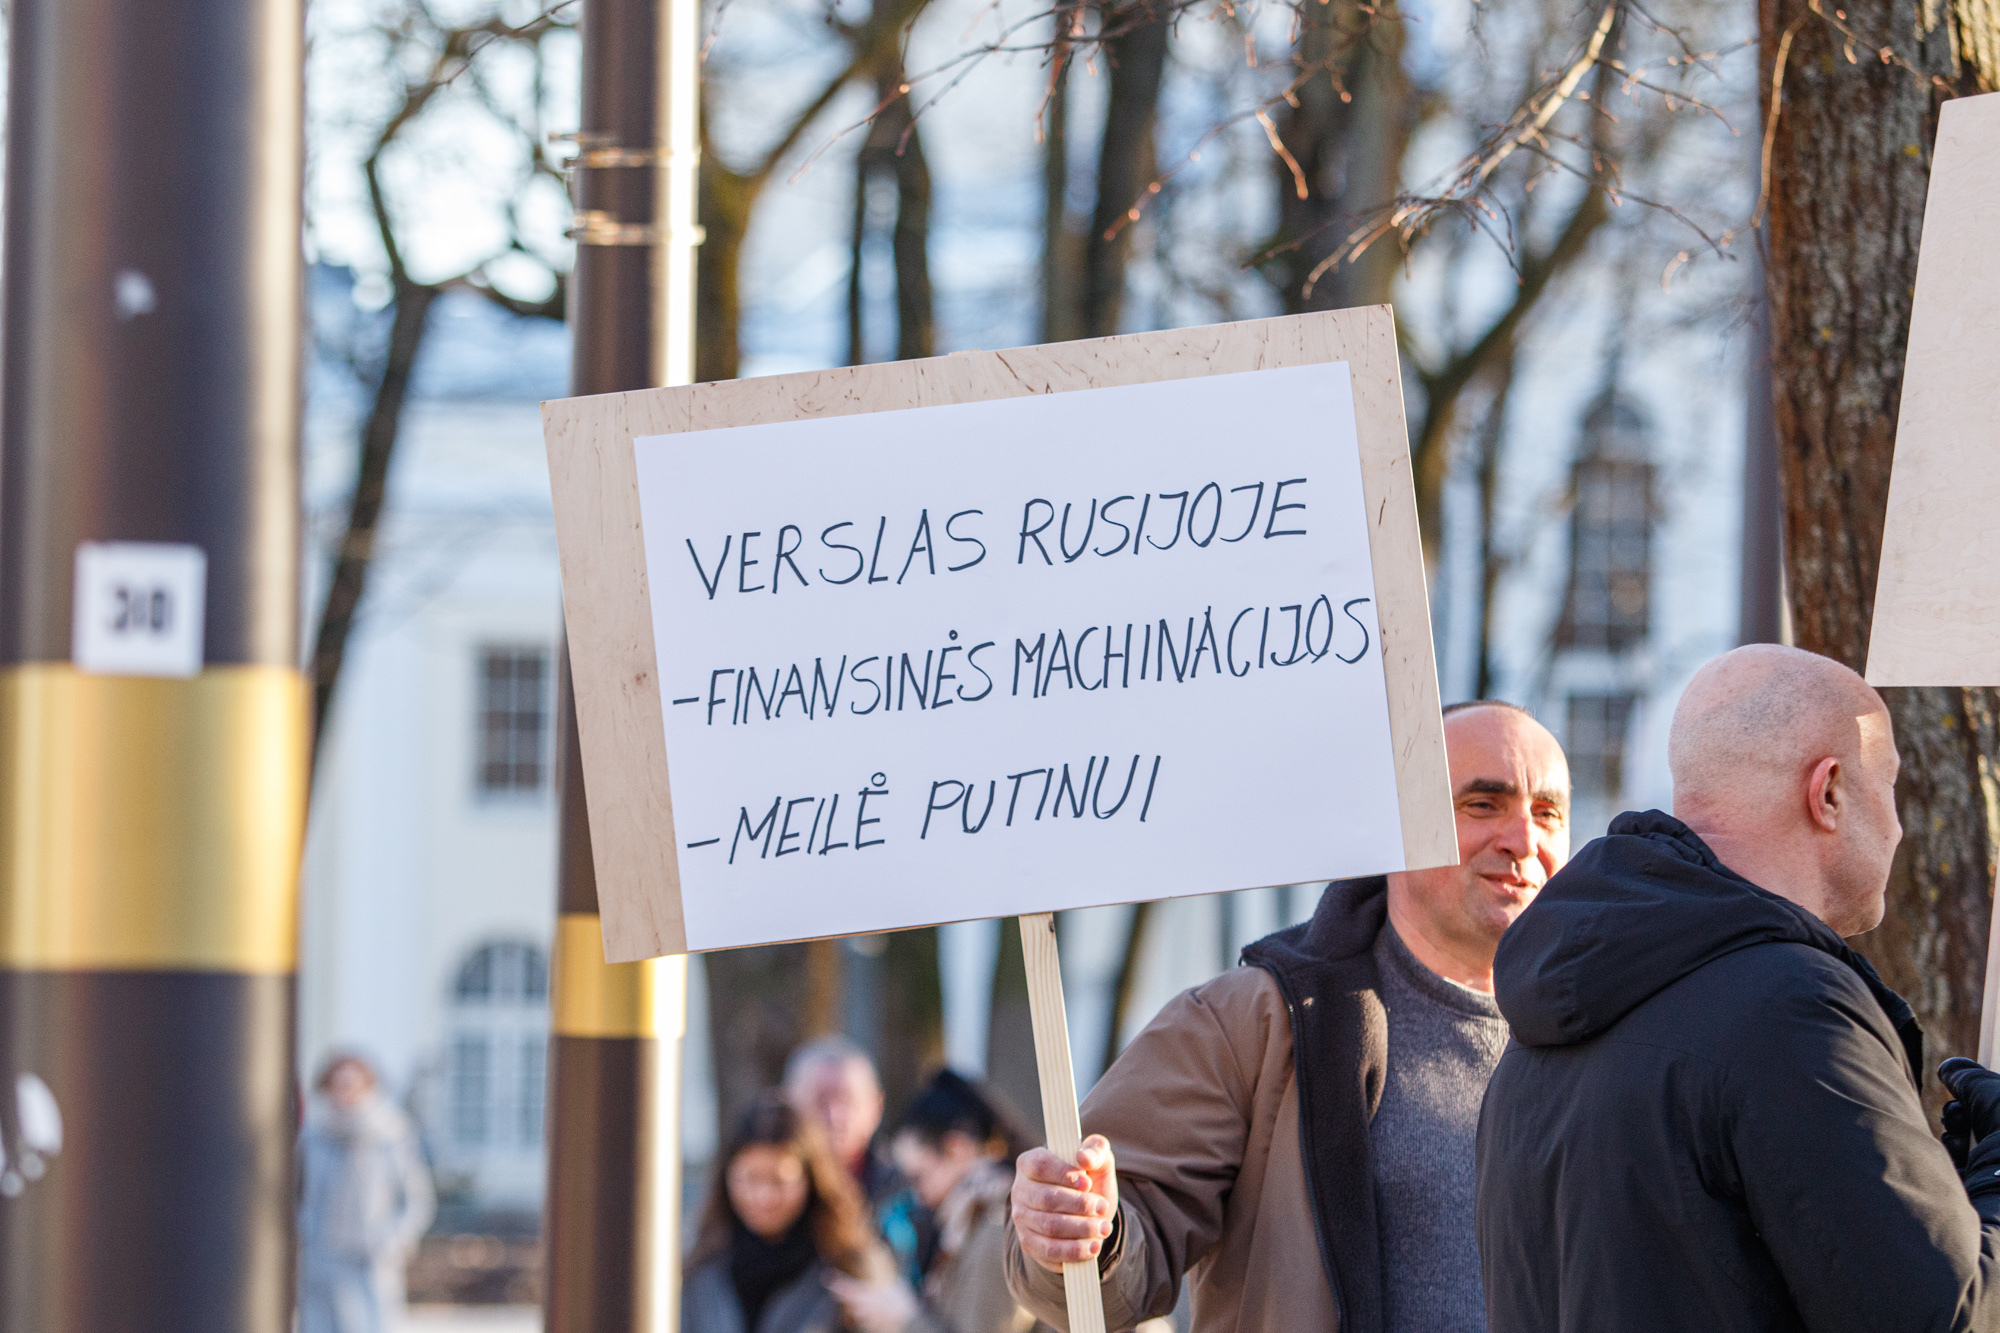 VERSLAS RUSIJOJE
-FINANSINĖS MACHINACIJOS
-MEILĖ PUTINUI